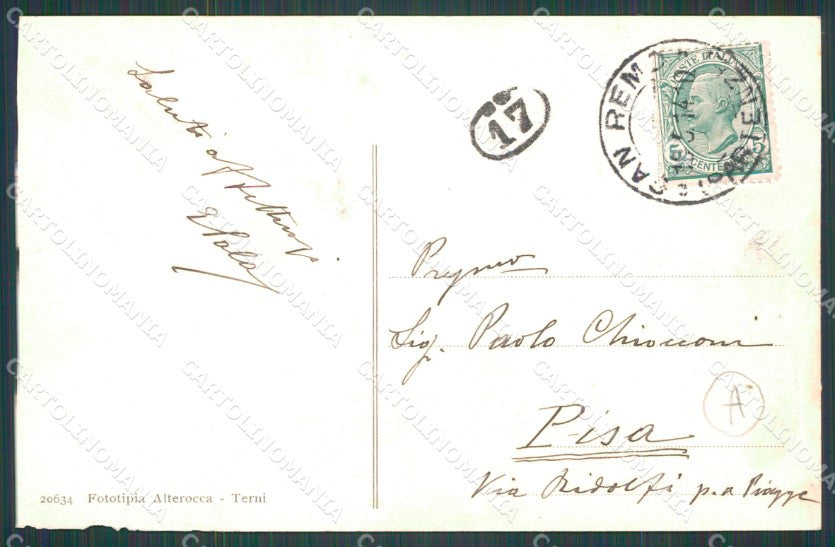 Saluti affettuosi
17
SAN REMO
POSTE ITALIANE
CENTE
Preg.mo
Sig. Paolo Chiocconi
Pisa
Via Ridolfi p.a Piagge
A
20634 Fototipia Alterocca - Terni
CARTOLINOMANIA